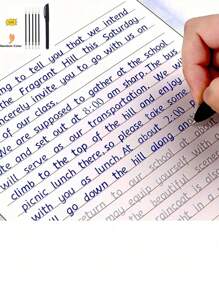 Random Color
ng to tell you that we intend
the Fragrant Hill this Saturday
sincerely invite you to go with us on
of our class.
We are supposed to gather at the school
ate and set out at 8:00 am sharp. The bus
will serve as our transportation. We will
climb to the top of the hill and enjoy
picnic lunch there, so please take some
with you as lunch. At about 2:00 p
go down the hill along an
return to our school at about
may equip yourself with
the beautiful scene
raincoat is also